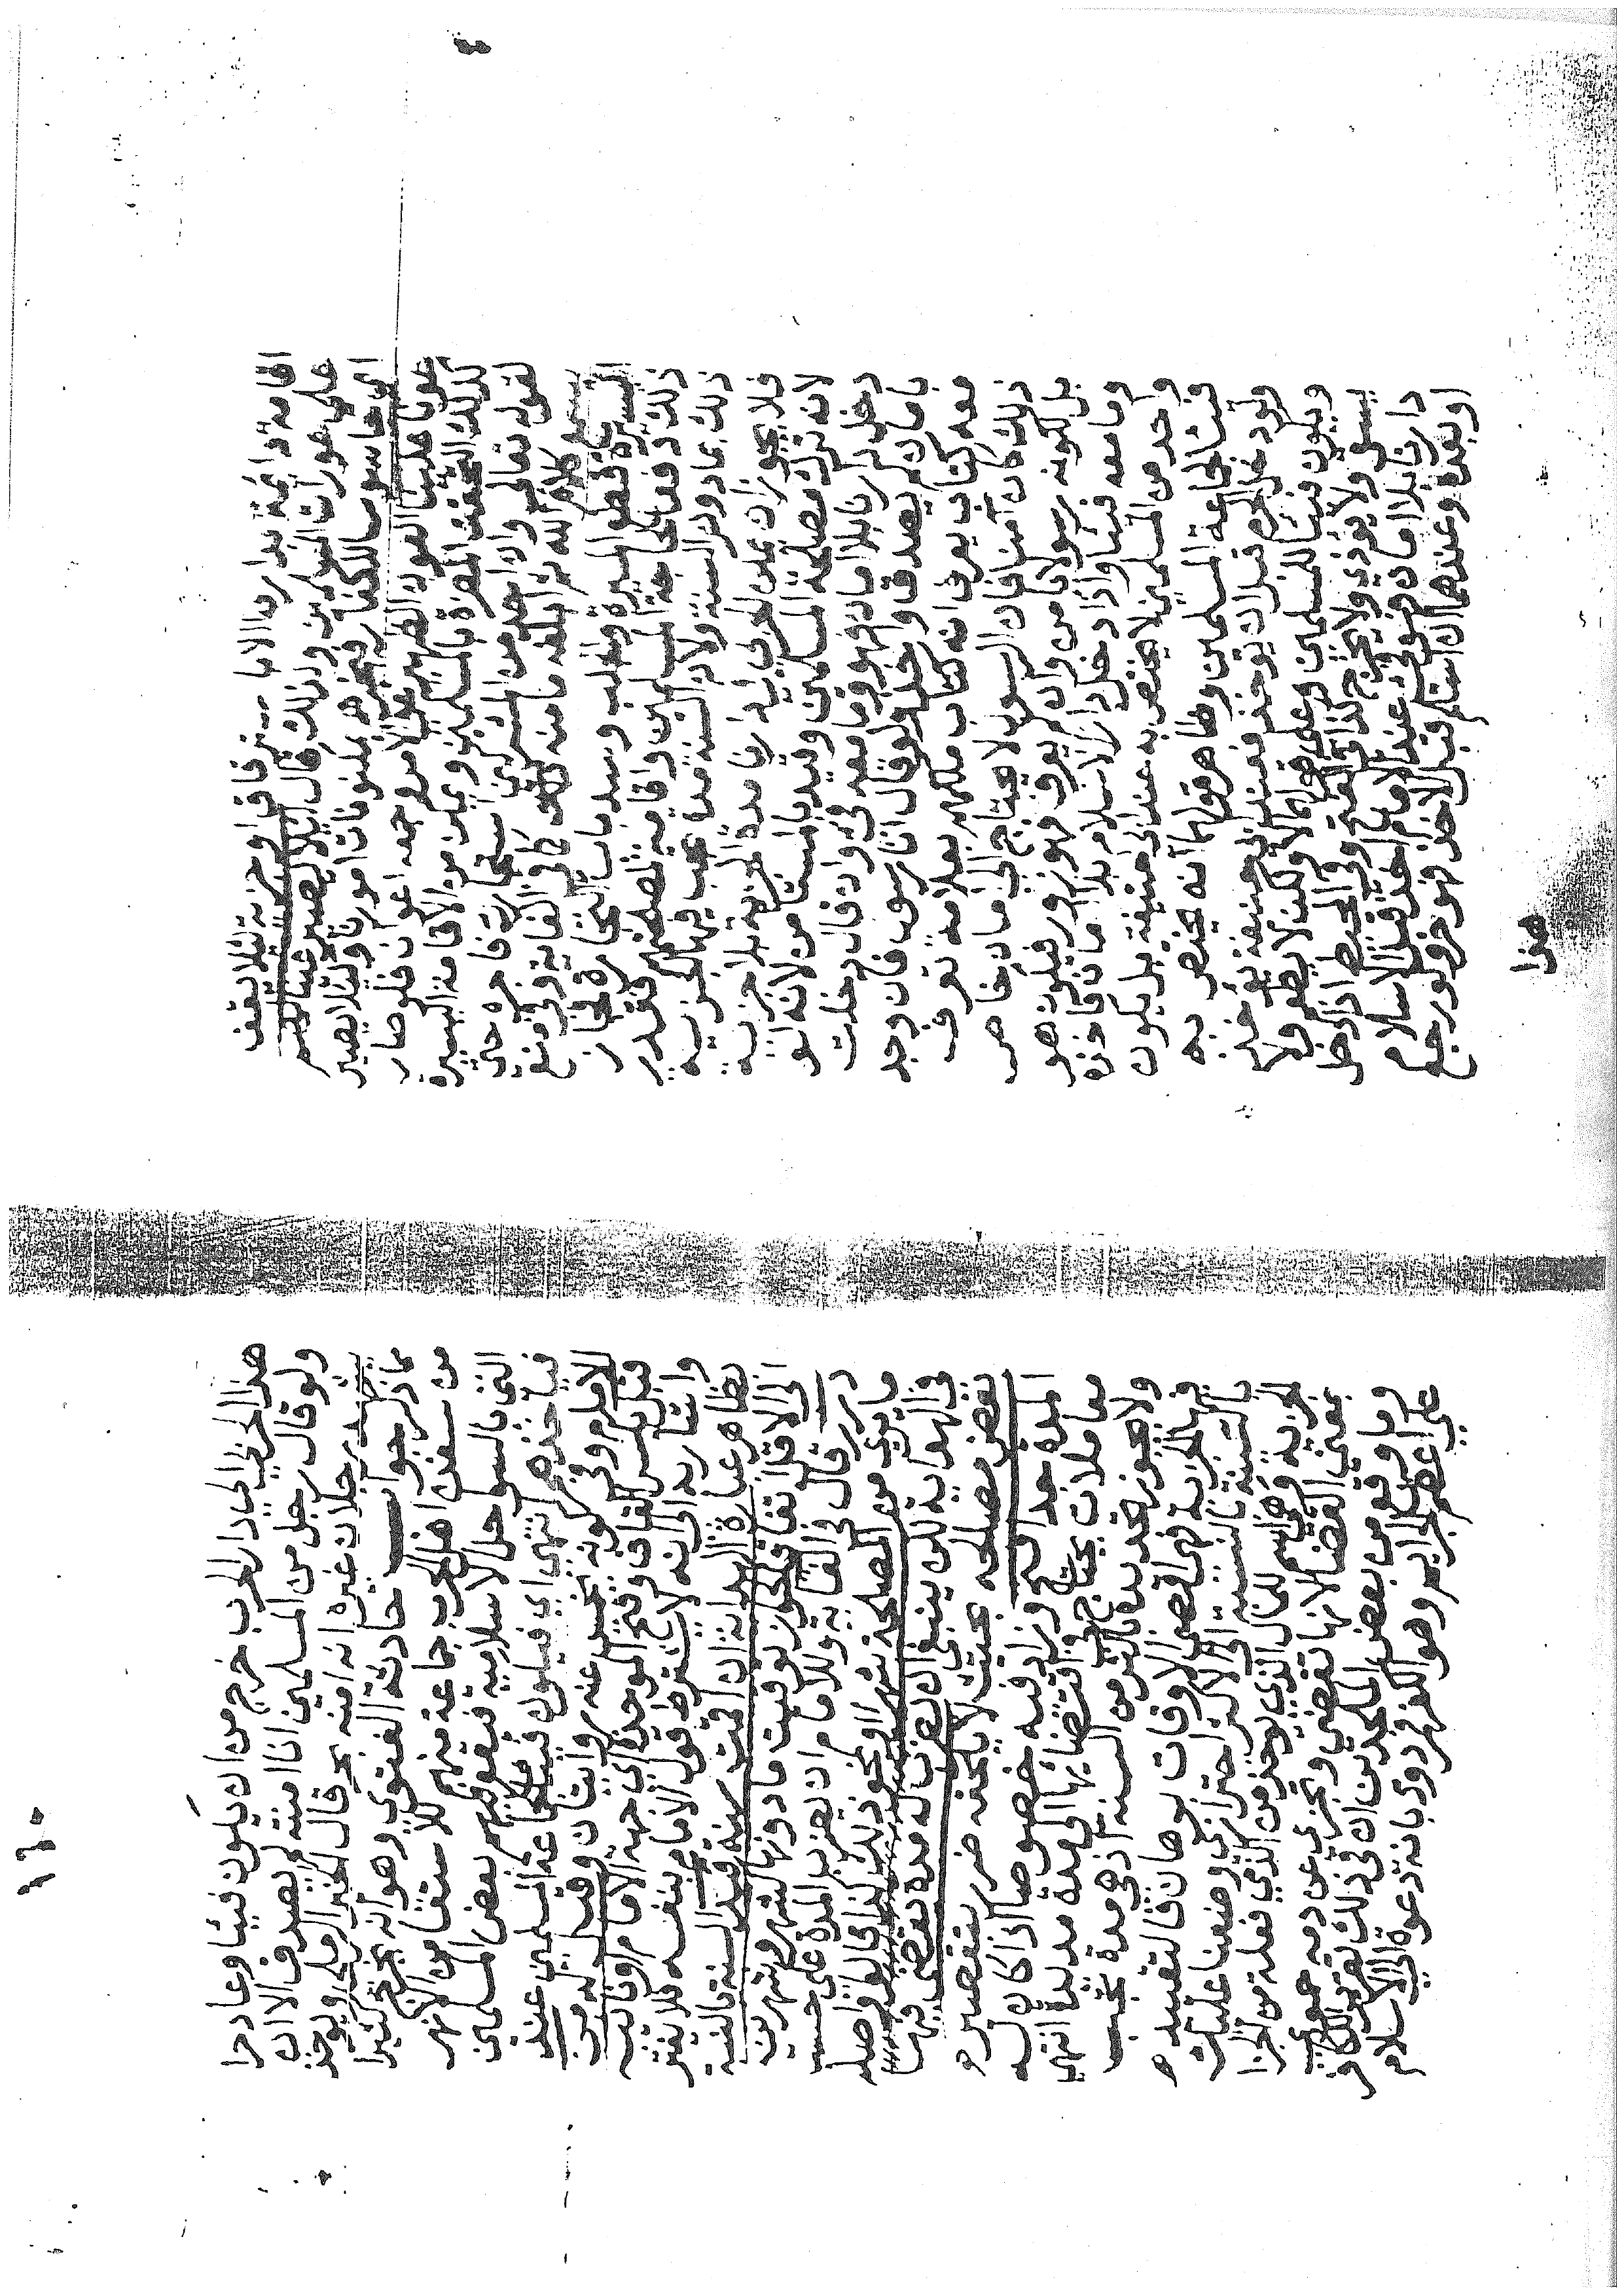 اقامة دايمة بدارنا الا باسترقاق او جزية لئلا يقف
على عورات المسلمين ولذلك قال لئلا يصير عينا لهم
اي جاسوسا للكفار فيخبرهم بمكنونات امورنا ولئلا يصير
عونا علينا العون الظهير على الامر وجمعه اعوان فلو صار
كذلك التحقت المضرة بالمسلمين ويمكن من الاقامة اليسيرة
لقوله تعالى وان احد من المشركين استجارك فاجره حتى
يسمع كلام الله ثم ابلغه مامنه كما في الغاية وفي منع
اليسيرة قطع الميرة والجلب وسد باب التجارة فجاز
ذلك دفعا لحاجة المسلمين واقامة لمصلحتهم فقدر
ذلك بما دون السنة ولان السنة مدة تجب فيها الجزية
فلا يجوز ان يمكن الحربي في دارنا مدة الجزية بلا جزية
لانه ترك مصلحة المسلمين وقيد بالمستامن لانه لو
دخل دارنا بلا امان فهو وما معه فئ وان قال دخلت
بامان لم يصدق واخذ ولو قال انا رسول فان وجد
معه كتاب يعرف انه كتاب ملكهم بعلامة تعرف
ذلك كان آمنا فان الرسول لا يحتاج الى امان خاص
بل لكونه رسولا يامن وان لم يعرف فهو زور فيكون هو
وما معه فيئا واذا دخل دار الاسلام بلا امان فاخذه
واحد من المسلمين لا يختص به عند ابي حنيفة بل يكون
فيئا لجماعة المسلمين وظاهر قولهما انه يختص به
ولو دخل الحرم قبل ان يوخذ فعند ابي حنيفة يوخذ
ويكون فيئا للمسلمين وعلى قولهما لا ولكن لا يطعم ولا
يسقى ولا يؤذى ولا يخرج كذا في الفتح وفي المحيط اذا دخل
دارنا بلا امان فهو فئ عند الامام اخذ قبل الاسلام
او بعده وعندهما ان اسلم قبل الاخذ فهو حر ولو رجع
هذا
١٦٥
هذا الحربي الى دار الحرب خرج من ان يكون فيئا وعاد حرا
ولو قال رجل من المسلمين انا امنته لم يصدق الا ان
يشهد رجلان غيره انه امنه بحر قال الخير الرملي ويوخذ
مما ذكر جواب حادثة الفتوى وهو انه يخرج كثيرا
من سفن اهل الحرب جماعة منهم للاستقا من الانهر
التي بالسواحل الاسلامية فيقع بهم بعض المسلمين
فياخذهم انتهى اي فيكون فيئا لجماعة المسلمين عند
الامام وفي كونه يخمس عنه روايتان وقيل له من
قبل بكسر القاف وفتح الموحدة اي جهة الامام او نائبه
واشار به الى انه لا يشترط قول الامام بنفسه فلا يغتر
بظاهر عبارة الهداية ان اقمت سنة قيد السنة بالنسبة
الى الاقل اتفاقي لجواز توقيت ما دونها كشهر وشهرين
درر قال في الغاية وللامام ان يضرب المدة على حسب
ما يرى من المصلحة شهرا او نحو ذلك كذا في
في الهداية لكن ينبغي ان يضرب له مدة يقضي فيها
بعض مصالحه بحيث لا يلحقه ضرر بتقصير
المدة جدا فتح وزاد فيه خصوصا اذا كان له
معاملات يحتاج في اقتضائها الى مدة مديدة انتهى
ولا يجوز تحديده باكثر من السنة اذ هي مدة تجب
فيها الجزية فهي اقصى الاوقات برهان فالتقييد
بالسنة بالنسبة الى الاكثر احترازي وضعنا عليك
الجزية وهي اسم للمال الذي يوخذ من الذمي فعلة من الجزا
بمعنى القضا لانها تقضي وتجزي عن دمه حموي
وما وقع من بعض الملحدين ان في ذلك تقرير الكافر
على اعظم الجرايم وهو الكفر رد بانه دعوة الى الاسلام